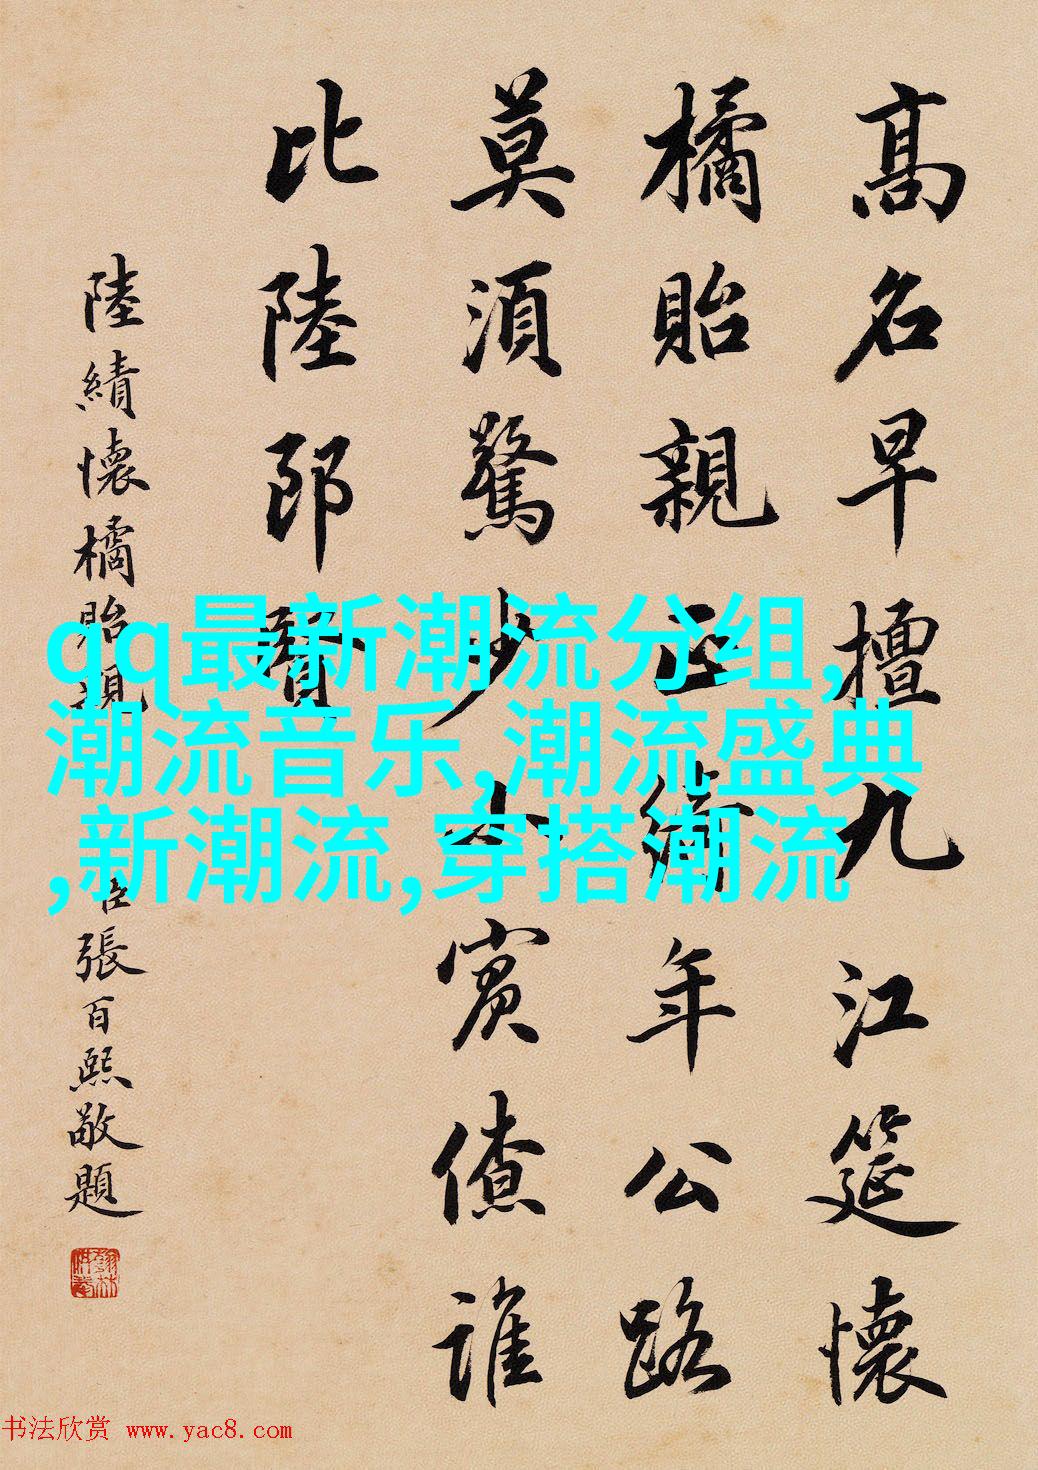 高名早擅九江筵懷
橘貽親正綺年公路
莫須驚少小賓僚誰
比陸郎賢
陸績懷橘貽親
臣張百熙敬題
翰林供奉
qq最新潮流分组,
潮流音乐,潮流盛典
,新潮流,穿搭潮流
书法欣赏 www.yac8.com